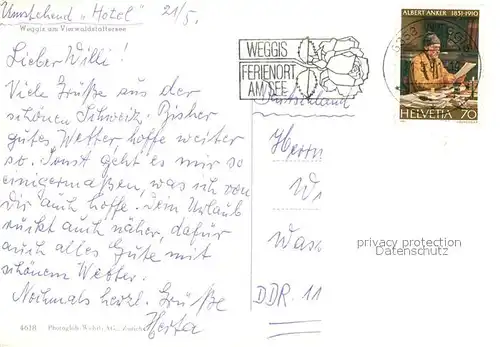 Umstehend "Hotel" 21/5.
Weggis am Vierwaldstättersee
Lieber Willi!
Viele Grüße aus der
schönen Schweiz. Bisher
gutes Wetter, hoffe weiter
so. Sonst geht es mir so
einigermaßen, was ich von
Dir auch hoffe. Dein Urlaub
rückt auch näher, dafür
auch alles Gute mit
schönem Wetter.
Nochmals herzl. Grüße
Herta
4618 Photoglob-Wehrli AG., Zürich
WEGGIS
FERIENORT
AM SEE
ALBERT ANKER 1831-1910
HELVETIA 70
Deutschland
Herrn
W
Was
DDR. 11
privacy protection
Datenschutz